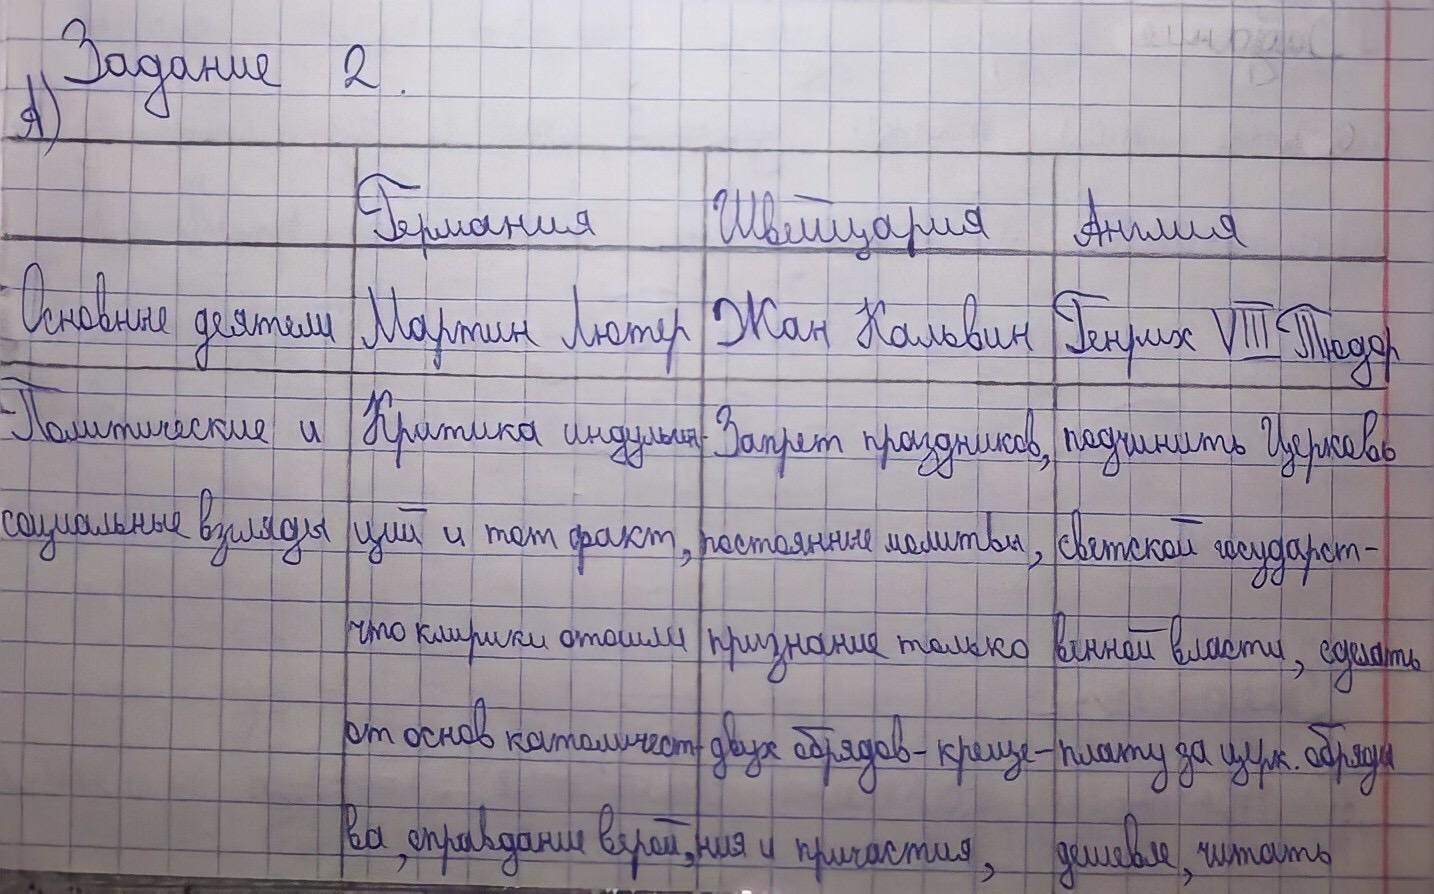 Задание 2.
А)
Германия Швейцария Англия
Основные деятели Мартин Лютер Жан Кальвин Генрих VIII Тюдор
Политические и Критика индульген- Запрет праздников, подчинить Церковь
социальные взгляды ций и тот факт, постоянные молитвы, светской государст-
что клирики отошли признание только венной власти, сделать
от основ католичест- двух обрядов - креще- плату за церк. обряды
ва, оправдание верой, ния и причастия, дешевле, читать